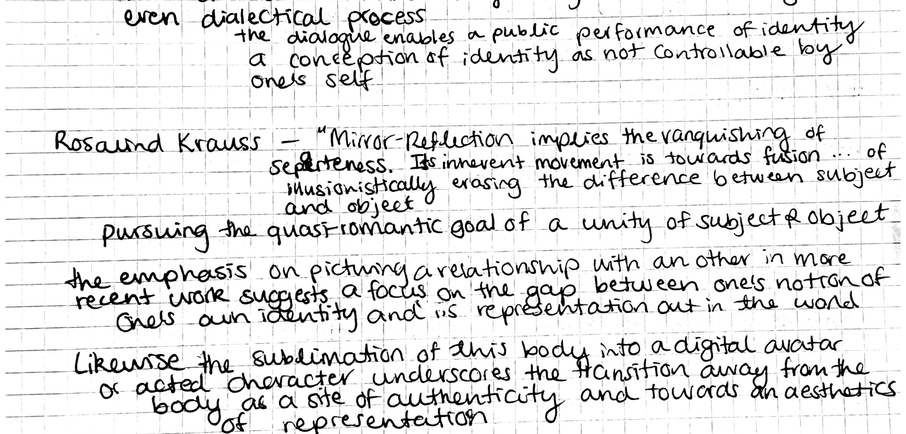 even dialectical process
the dialogue enables a public performance of identity
a conception of identity as not controllable by
one's self
Rosalind Krauss – "Mirror-Reflection implies the vanquishing of
seperteness. Its inherent movement is towards fusion ... of
illusionistically erasing the difference between subject
and object
pursuing the quasi-romantic goal of a unity of subject & object
the emphasis on picturing a relationship with an other in more
recent work suggests a focus on the gap between one's notion of
one's own identity and its representation out in the world
Likewise the sublimation of this body into a digital avatar
or acted character underscores the transition away from the
body as a site of authenticity and towards an aesthetics
of representation